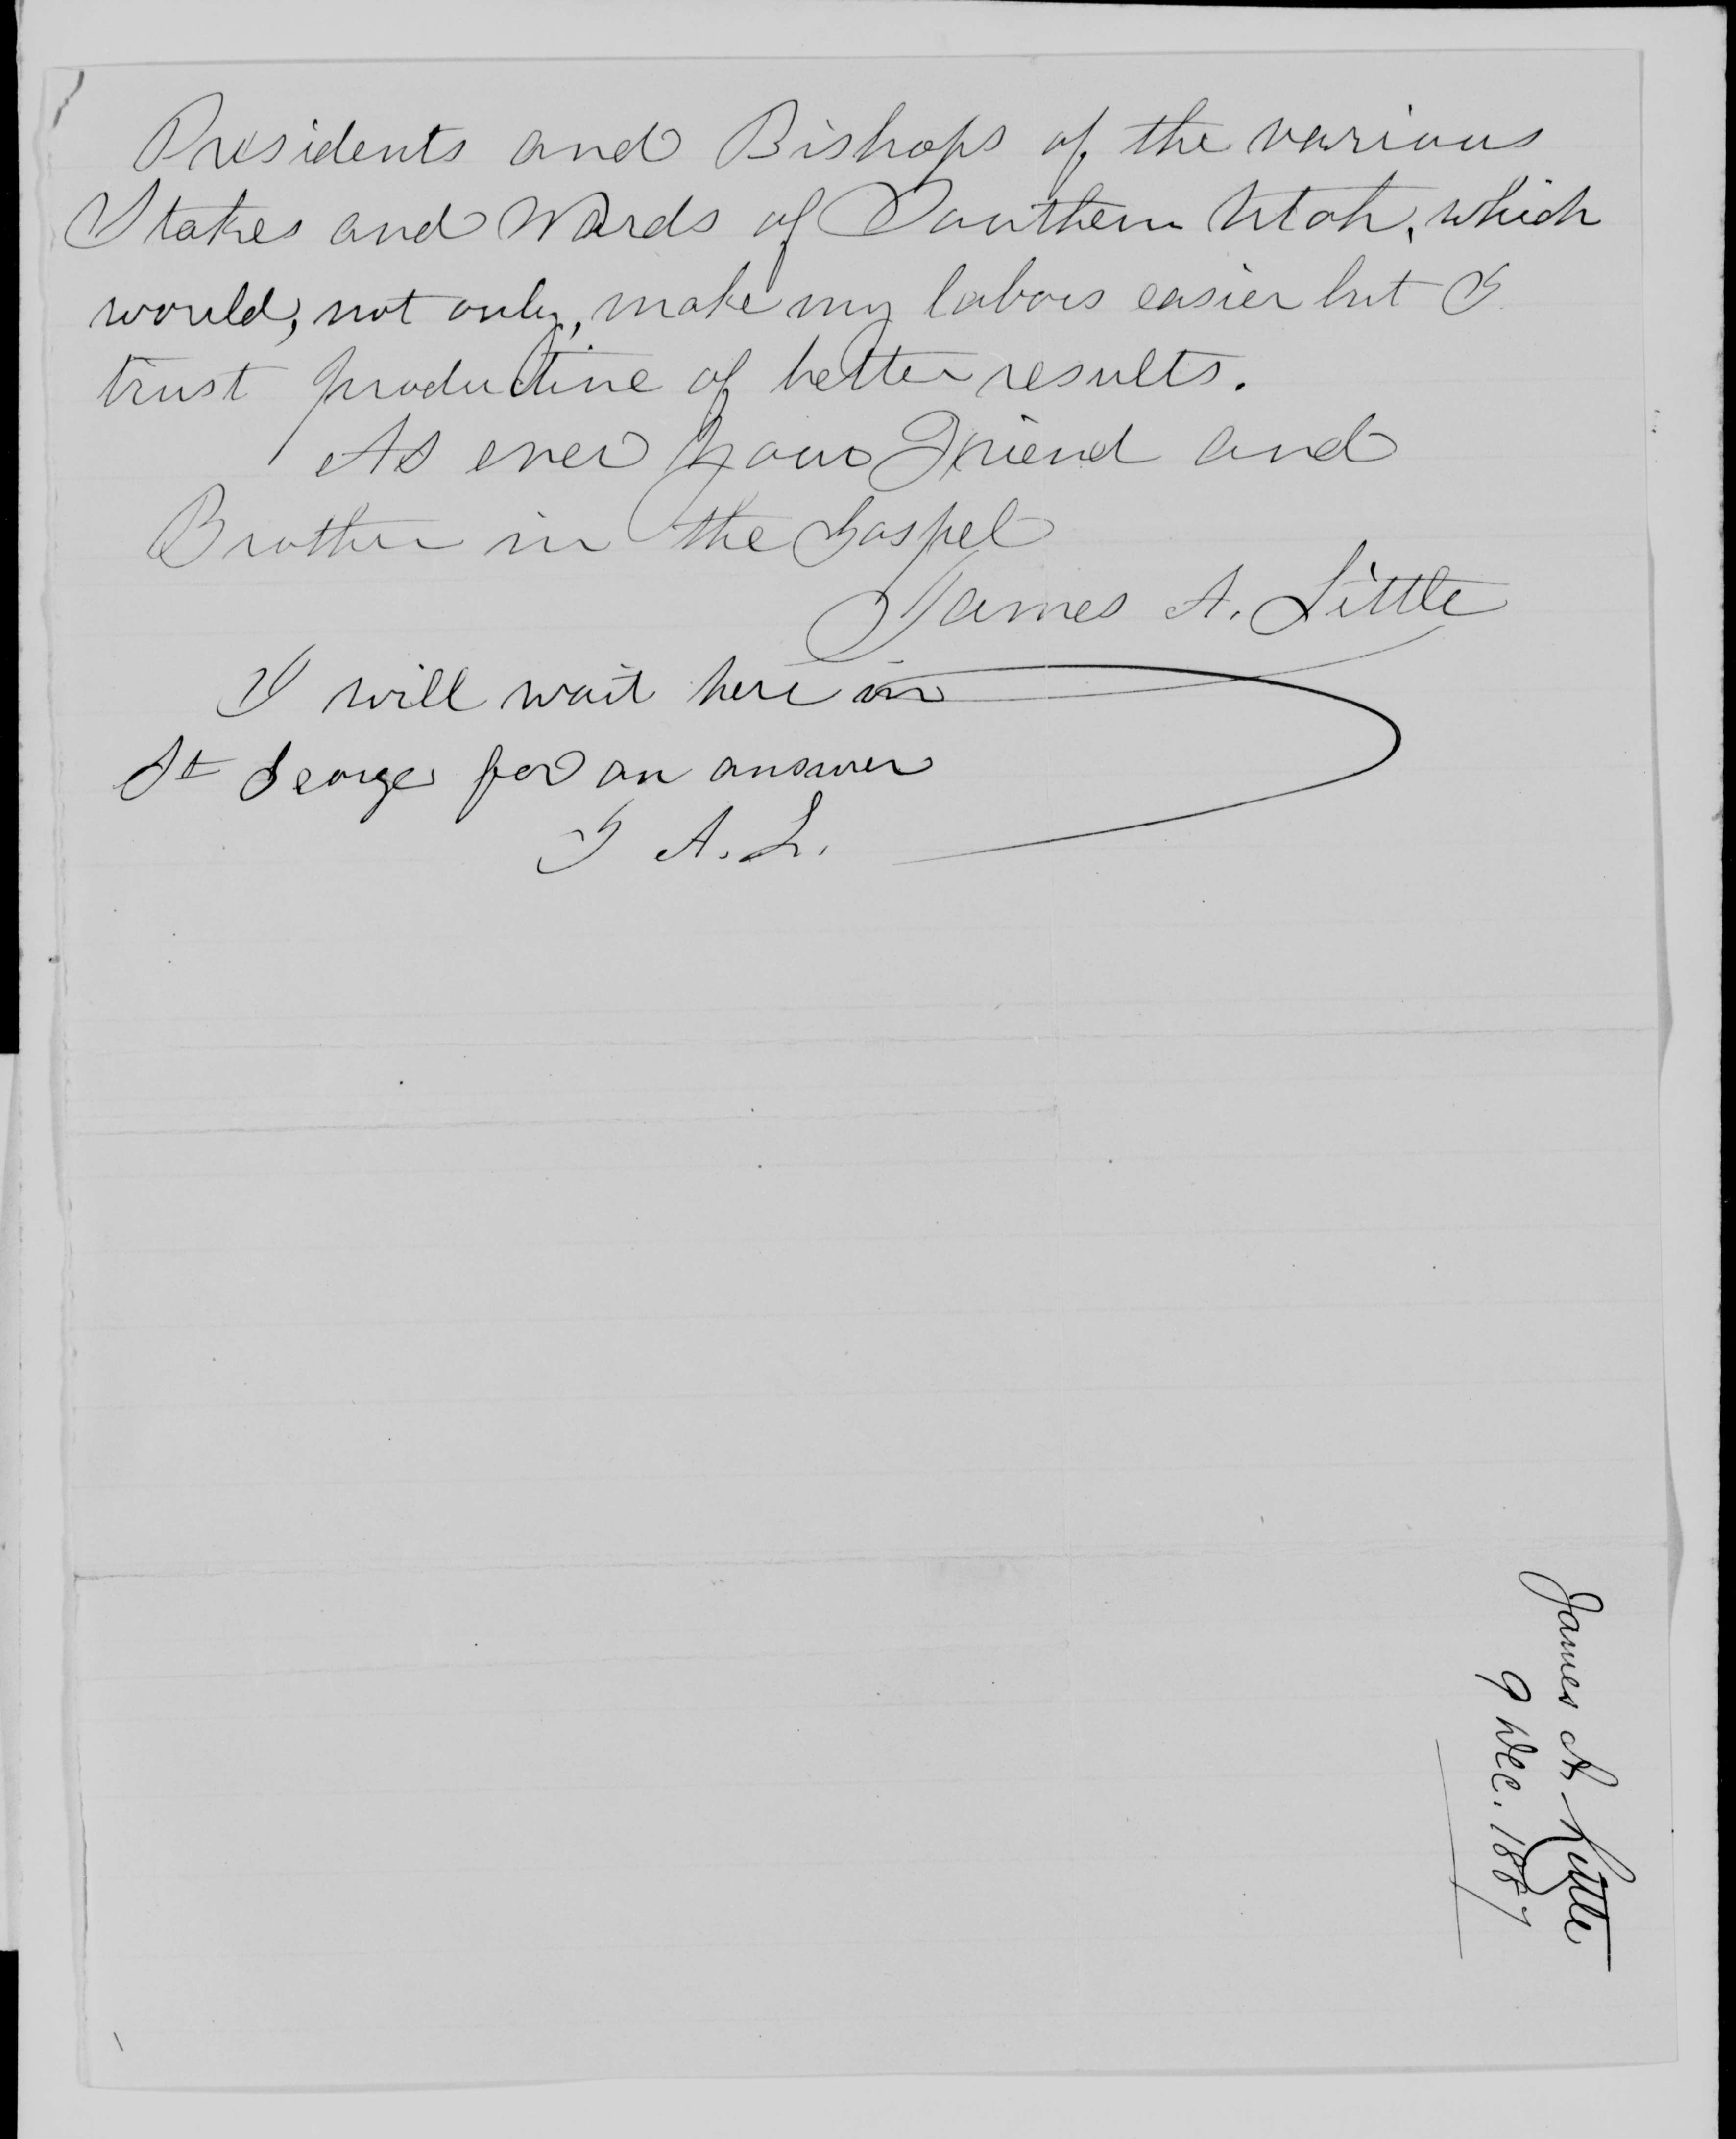 Presidents and Bishops of the various
Stakes and Wards of Southern Utah, which
would, not only, make my labors easier but I
trust productive of better results.
As ever your Friend and
Brother in the Gospel
James A. Little
I will wait here in
St George for an answer
J A. L.
James A. Little
9 Dec. 1887